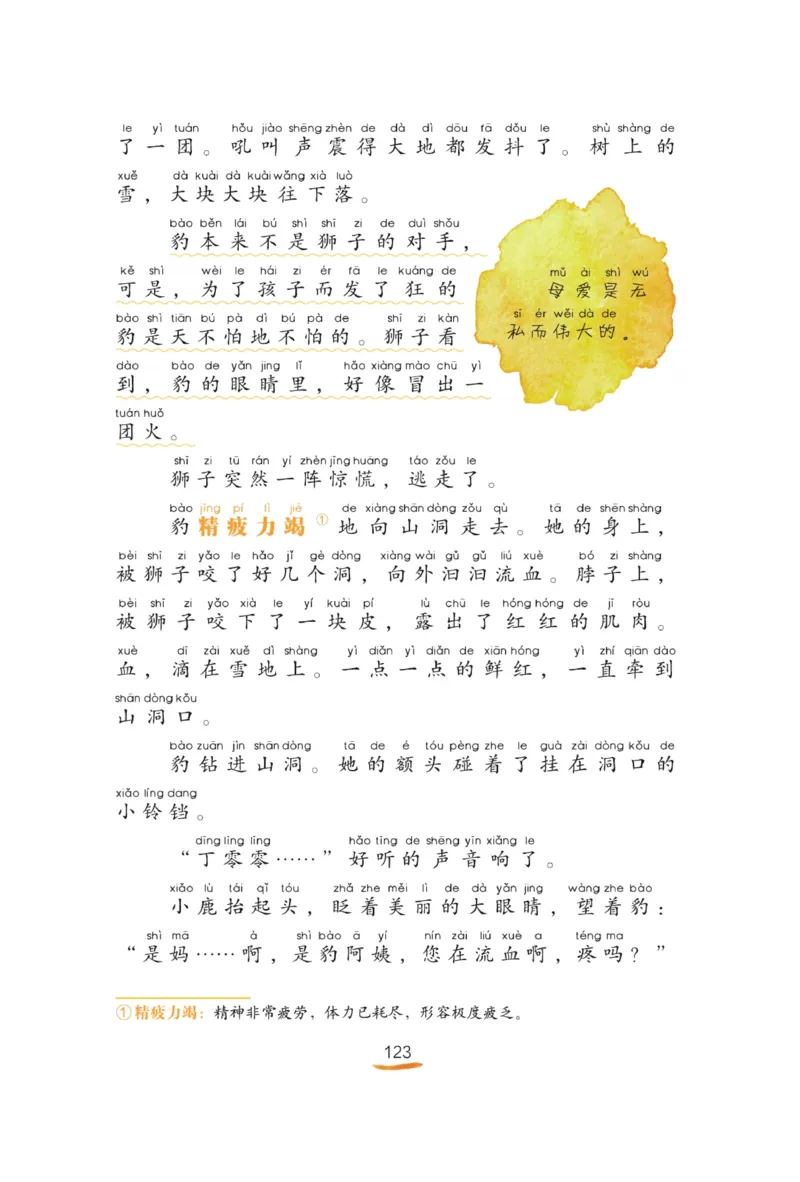 le yì tuán hǒu jiào shēng zhèn de dà dì dōu fā dǒu le shù shàng de
了一团。吼叫声震得大地都发抖了。树上的
xuě dà kuài dà kuài wǎng xià luò
雪，大块大块往下落。
bào běn lái bú shì shī zi de duì shǒu
豹本来不是狮子的对手，
kě shì wèi le hái zi ér fā le kuáng de
可是，为了孩子而发了狂的
bào shì tiān bú pà dì bú pà de shī zi kàn
豹是天不怕地不怕的。狮子看
dào bào de yǎn jing lǐ hǎo xiàng mào chū yì
到，豹的眼睛里，好像冒出一
tuán huǒ
团火。
mǔ ài shì wú
母爱是无
sī ér wěi dà de
私而伟大的。
shī zi tū rán yí zhèn jīng huāng táo zǒu le
狮子突然一阵惊慌，逃走了。
bào jīng pí lì jié de xiàng shān dòng zǒu qù tā de shēn shàng
豹精疲力竭①地向山洞走去。她的身上，
bèi shī zi yǎo le hǎo jǐ gè dòng xiàng wài gǔ gǔ liú xuè bó zi shàng
被狮子咬了好几个洞，向外汩汩流血。脖子上，
bèi shī zi yǎo xià le yí kuài pí lù chū le hóng hóng de jī ròu
被狮子咬下了一块皮，露出了红红的肌肉。
xuè dī zài xuě dì shàng yì diǎn yì diǎn de xiān hóng yì zhí qiān dào
血，滴在雪地上。一点一点的鲜红，一直牵到
shān dòng kǒu
山洞口。
bào zuān jìn shān dòng tā de é tóu pèng zhe le guà zài dòng kǒu de
豹钻进山洞。她的额头碰着了挂在洞口的
xiǎo líng dang
小铃铛。
dīng líng líng hǎo tīng de shēng yīn xiǎng le
“丁零零……”好听的声音响了。
xiǎo lù tái qǐ tóu zhǎ zhe měi lì de dà yǎn jing wàng zhe bào
小鹿抬起头，眨着美丽的大眼睛，望着豹：
shì mā à shì bào ā yí nín zài liú xuè a téng ma
“是妈……啊，是豹阿姨，您在流血啊，疼吗？”
①精疲力竭：精神非常疲劳，体力已耗尽，形容极度疲乏。
123